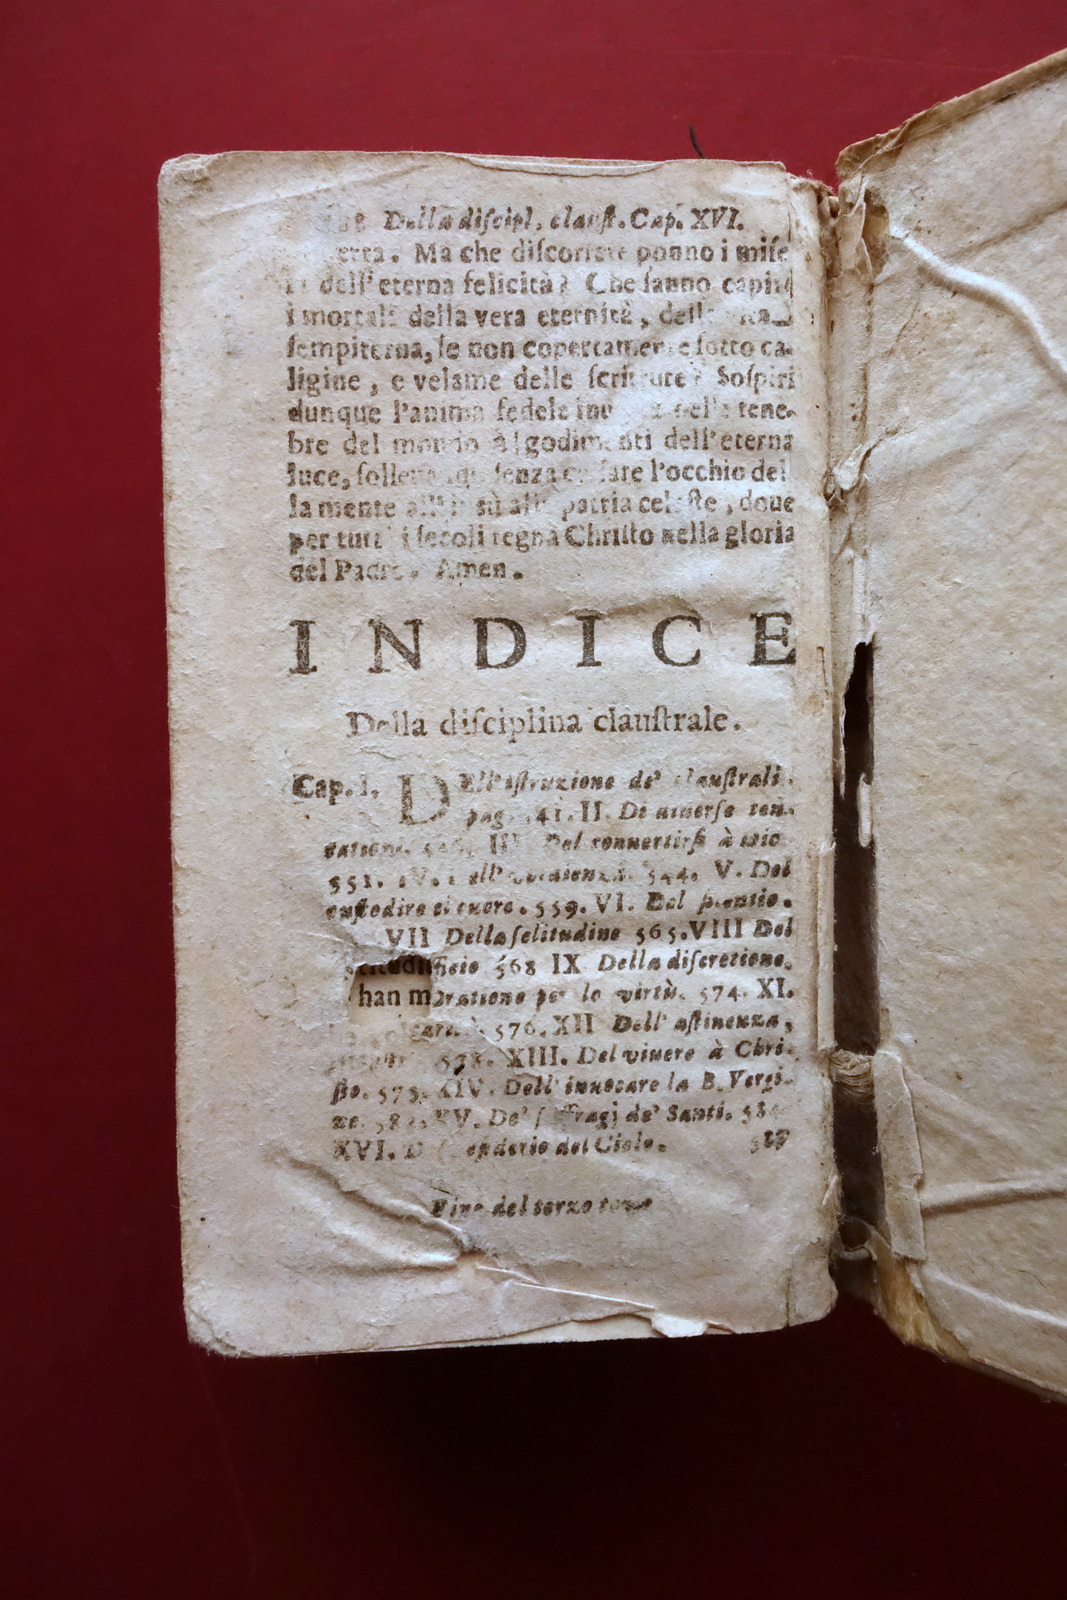 Della diſcipl. clauſt. Cap. XVI.
Ma che diſcorrere ponno i miſe
dell'eterna felicità? Che ſanno capire
i mortali della vera eternità, della vita
ſempiterna, ſe non copertamente ſotto ca-
ligine, e velame delle ſcritture? Soſpiri
dunque l'anima fedele nelle tene-
bre del mondo à godimenti dell'eterna
luce, ſenza l'occhio del
la mente all'in sù alla patria celeſte, doue
per tutti i ſecoli regna Chriſto nella gloria
del Padre. Amen.
INDICE
Della diſciplina clauſtrale.
Cap. I. DEll'iſtruzione de' clauſtrali.
pag. 41. II. Di diuerſe ten-
III. Del conuertirſi à
551. IV. 544. V. Del
cuſtodire il cuore. 559. VI. Del
VII Della ſolitudine 565. VIII Del
ficio 568 IX Della diſcretione.
han m ratione per le virtù. 574. XI.
576. XII Dell'aſtinenza,
578. XIII. Del viuere à Chri-
ſto. 575. XIV. Dell'inuocare la B. Vergi-
ne. XV. De' ſuffragj de' Santi. 584
XVI. del Cielo. 587
Fine del terzo tomo